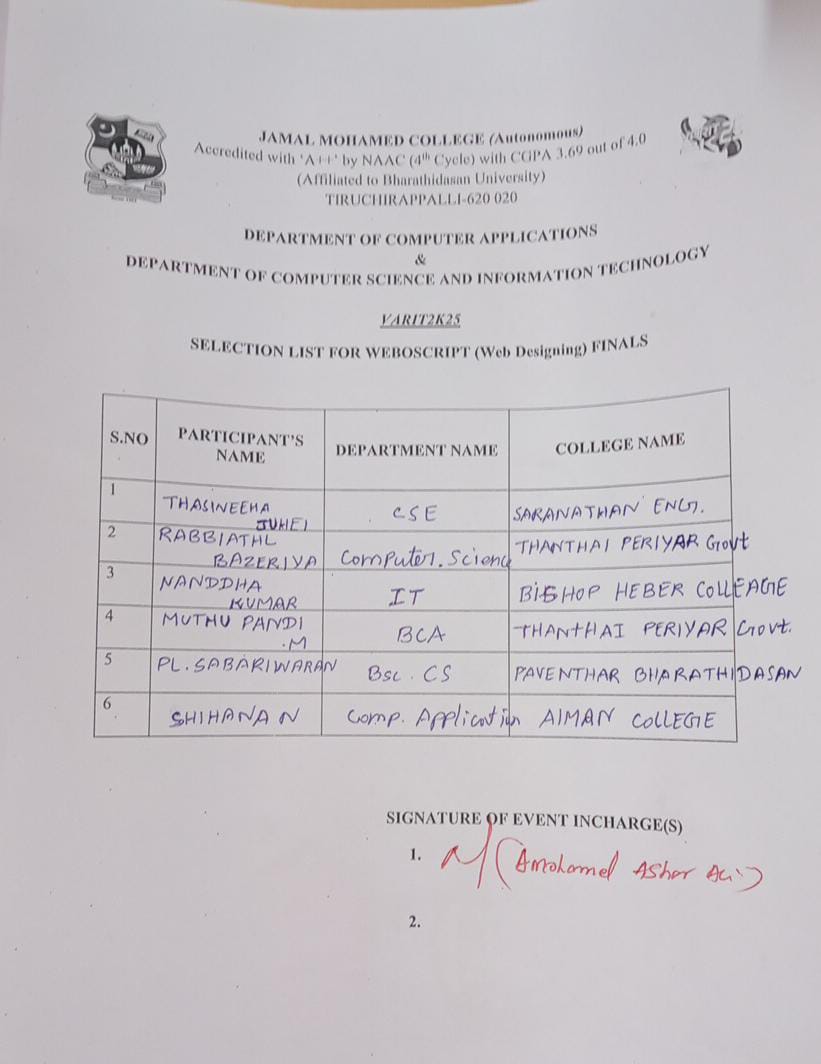 JAMAL MOHAMED COLLEGE (Autonomous)
Accredited with 'A++' by NAAC (4th Cycle) with CGPA 3.69 out of 4.0
(Affiliated to Bharathidasan University)
TIRUCHIRAPPALLI-620 020
DEPARTMENT OF COMPUTER APPLICATIONS
&
DEPARTMENT OF COMPUTER SCIENCE AND INFORMATION TECHNOLOGY
VARIT2K25
SELECTION LIST FOR WEBOSCRIPT (Web Designing) FINALS
S.NO PARTICIPANT'S NAME DEPARTMENT NAME COLLEGE NAME
1 THASINEEHA JUHEI CSE SARANATHAN ENG.
2 RABBIATHL BAZERIYA Computer. Science THANTHAI PERIYAR Govt
3 NANDDHA KUMAR IT BISHOP HEBER COLLEAGE
4 MUTHU PANDI .M BCA THANTHAI PERIYAR Govt.
5 PL. SABARIWARAN Bsc. CS PAVENTHAR BHARATHIDASAN
6 SHIHANA N Comp. Application AIMAN COLLEGE
SIGNATURE OF EVENT INCHARGE(S)
1. (A mohamed Asher
2.